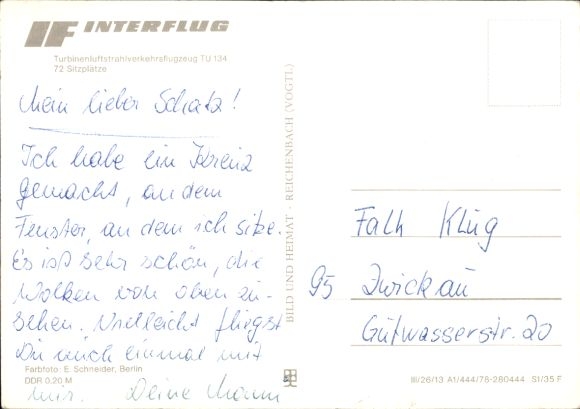 IF INTERFLUG
Turbinenluftstrahlverkehrsflugzeug TU 134
72 Sitzplätze
Mein lieber Schatz!
Ich habe ein Kreuz
gemacht, an dem
Fenster, an dem ich sitze.
Es ist sehr schön, die
Wolken von oben zu-
sehen. Vielleicht fliegst
Du auch einmal mit
mir. Deine Mami
Farbfoto: E. Schneider, Berlin
DDR 0,20 M
BILD UND HEIMAT · REICHENBACH (VOGTL)
Falk Klug
95 Zwickau
Gutwasserstr. 20
III/26/13 A1/444/78-280444 S1/35 F